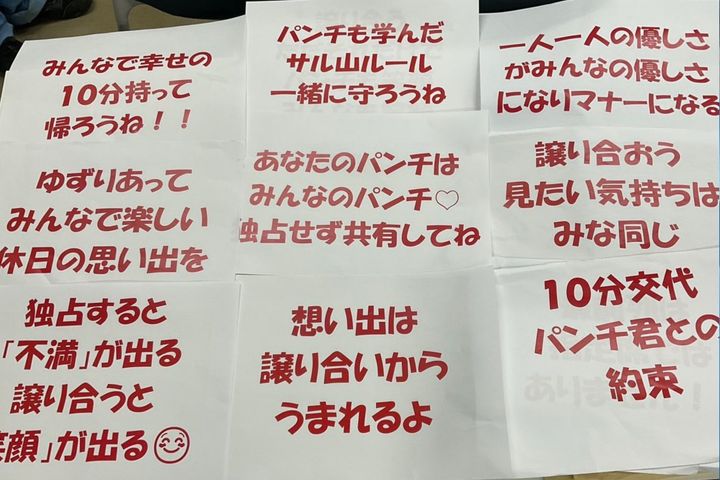 みんなで幸せの
10分持って
帰ろうね！！
パンチも学んだ
サル山ルール
一緒に守ろうね
一人一人の優しさ
がみんなの優しさ
になりマナーになる
ゆずりあって
みんなで楽しい
休日の思い出を
あなたのパンチは
みんなのパンチ♡
独占せず共有してね
譲り合おう
見たい気持ちは
みな同じ
独占すると
「不満」が出る
譲り合うと
笑顔」が出る😊
想い出は
譲り合いから
うまれるよ
10分交代
パンチ君との
約束